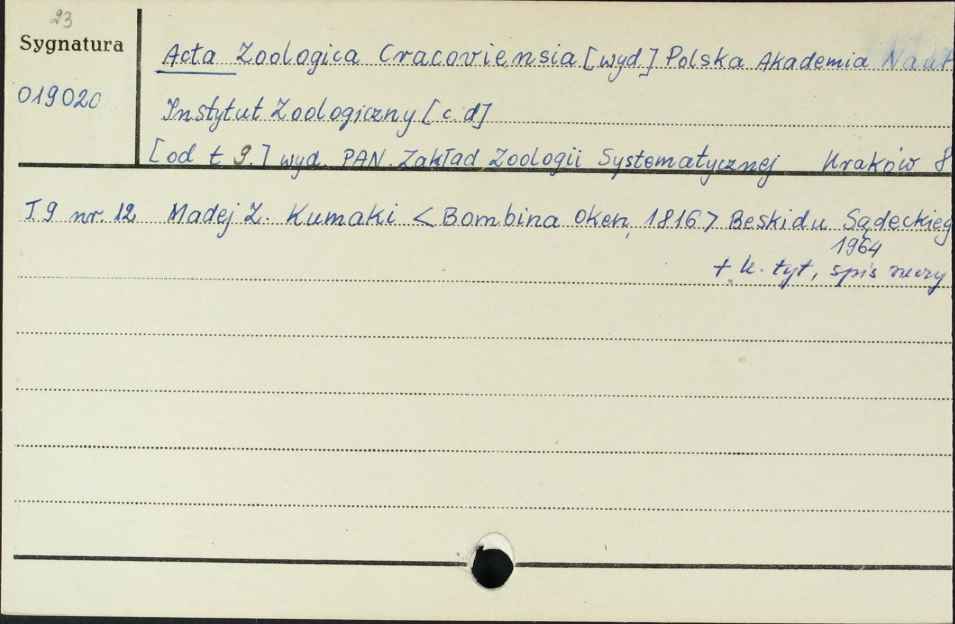 23
Sygnatura
019020
Acta Zoologica Cracoviensia [wyd] Polska Akademia Nauk
Instytut Zoologiczny [c.d]
[od t 9.] wyd. PAN Zakład Zoologii Systematycznej Kraków 8
T.9 nr. 12 Madej Z. Kumaki <Bombina Oken, 1816> Beskidu Sądeckieg
1964
+ k. tyt, spis rzeczy